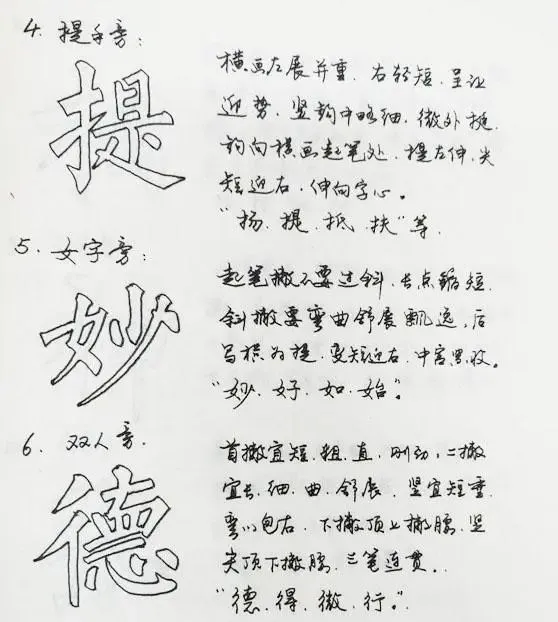 4. 提手旁:
提
横画左展并重.右轻短.呈让
迎势.竖钩中略细.微外挺.
钩向横画起笔处.提左伸.尖
短迎右.伸向字心。
"扬.提.抵.扶"等.
5. 女字旁:
妙
起笔撇不要过斜.长点缩短.
斜撇要弯曲舒展飘逸.后
写横为提.变短迎右.中宫累收。
"妙.好.如.始"。
6. 双人旁.
德
首撇宜短.粗.直.刚劲,二撇
宜长.细.曲.舒展.竖宜短重
弯以包右.下撇顶上撇腰.竖
尖顶下撇腰.三笔连贯.
"德.得.微.行."